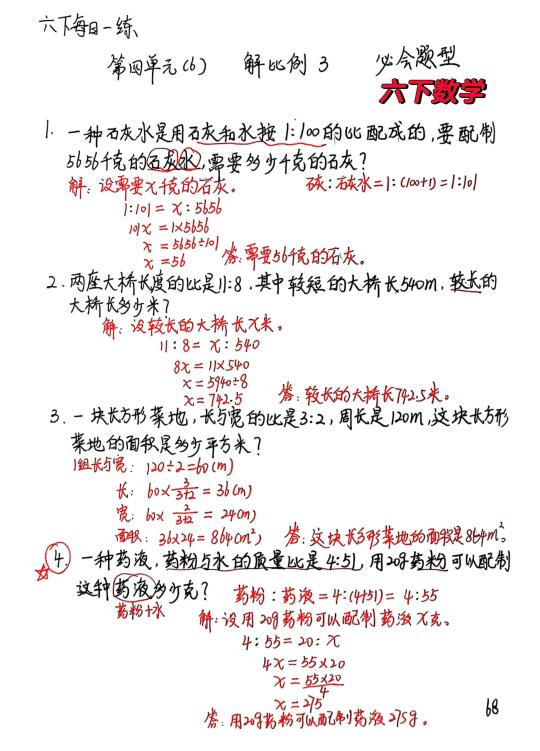 六下每日一练
第四单元(6) 解比例 3 必会题型
六下数学
1. 一种石灰水是用石灰和水按1:100的比配成的,要配制
5656千克的石灰水,需要多少千克的石灰?
解:设需要x千克的石灰。 石灰:石灰水=1:(100+1)=1:101
1:101 = x:5656
101x = 1×5656
x = 5656÷101
x = 56 答:需要56千克的石灰。
2. 两座大桥长度的比是11:8,其中较短的大桥长540m,较长的
大桥长多少米?
解:设较长的大桥长x米。
11:8 = x:540
8x = 11×540
x = 5940÷8
x = 742.5 答:较长的大桥长742.5米。
3. 一块长方形菜地,长与宽的比是3:2,周长是120m,这块长方形
菜地的面积是多少平方米?
1组长与宽: 120÷2=60(m)
长: 60×3/(3+2) = 36(m)
宽: 60×2/(3+2) = 24(m)
面积: 36×24=864(m²) 答:这块长方形菜地的面积是864m²。
4. 一种药液,药粉与水的质量比是4:51,用20g药粉可以配制
这种药液多少克? 药粉:药液=4:(4+51)=4:55
药粉+水 解:设用20g药粉可以配制药液x克。
4:55=20:x
4x=55×20
x=55×20/4
x=275
答:用20g药粉可以配制药液275g。
68